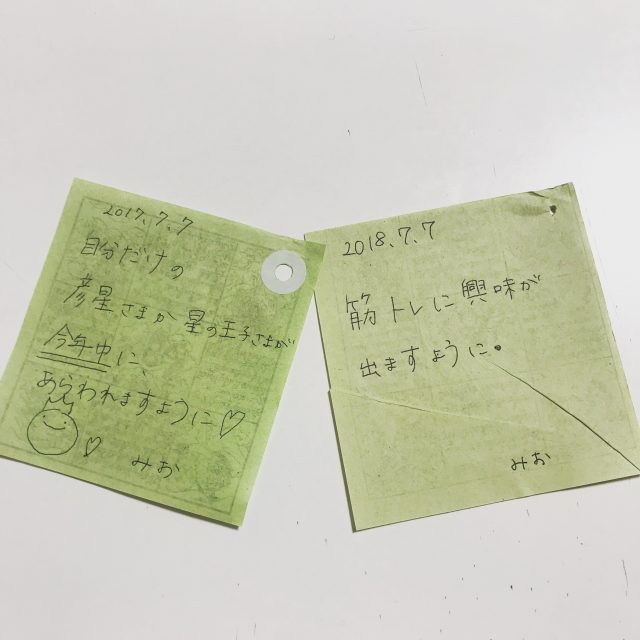 2017.7.7
自分だけの
彦星さまか星の王子さまが
今年中に、
あらわれますように♡
♡ みお
2018.7.7
筋トレに興味が
出ますように。
みお